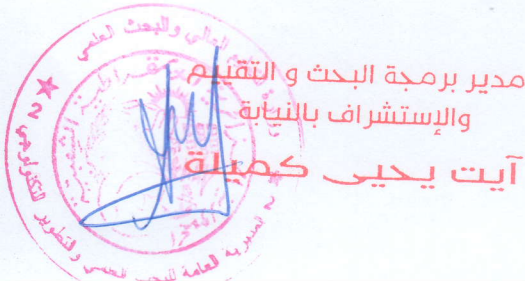 مدير برمجة البحث و التقييم
والإستشراف بالنيابة
آيت يحيى كميلة
العالي والبحث العلمي
المديرية العامة للبحث العلمي والتطوير التكنولوجي
2